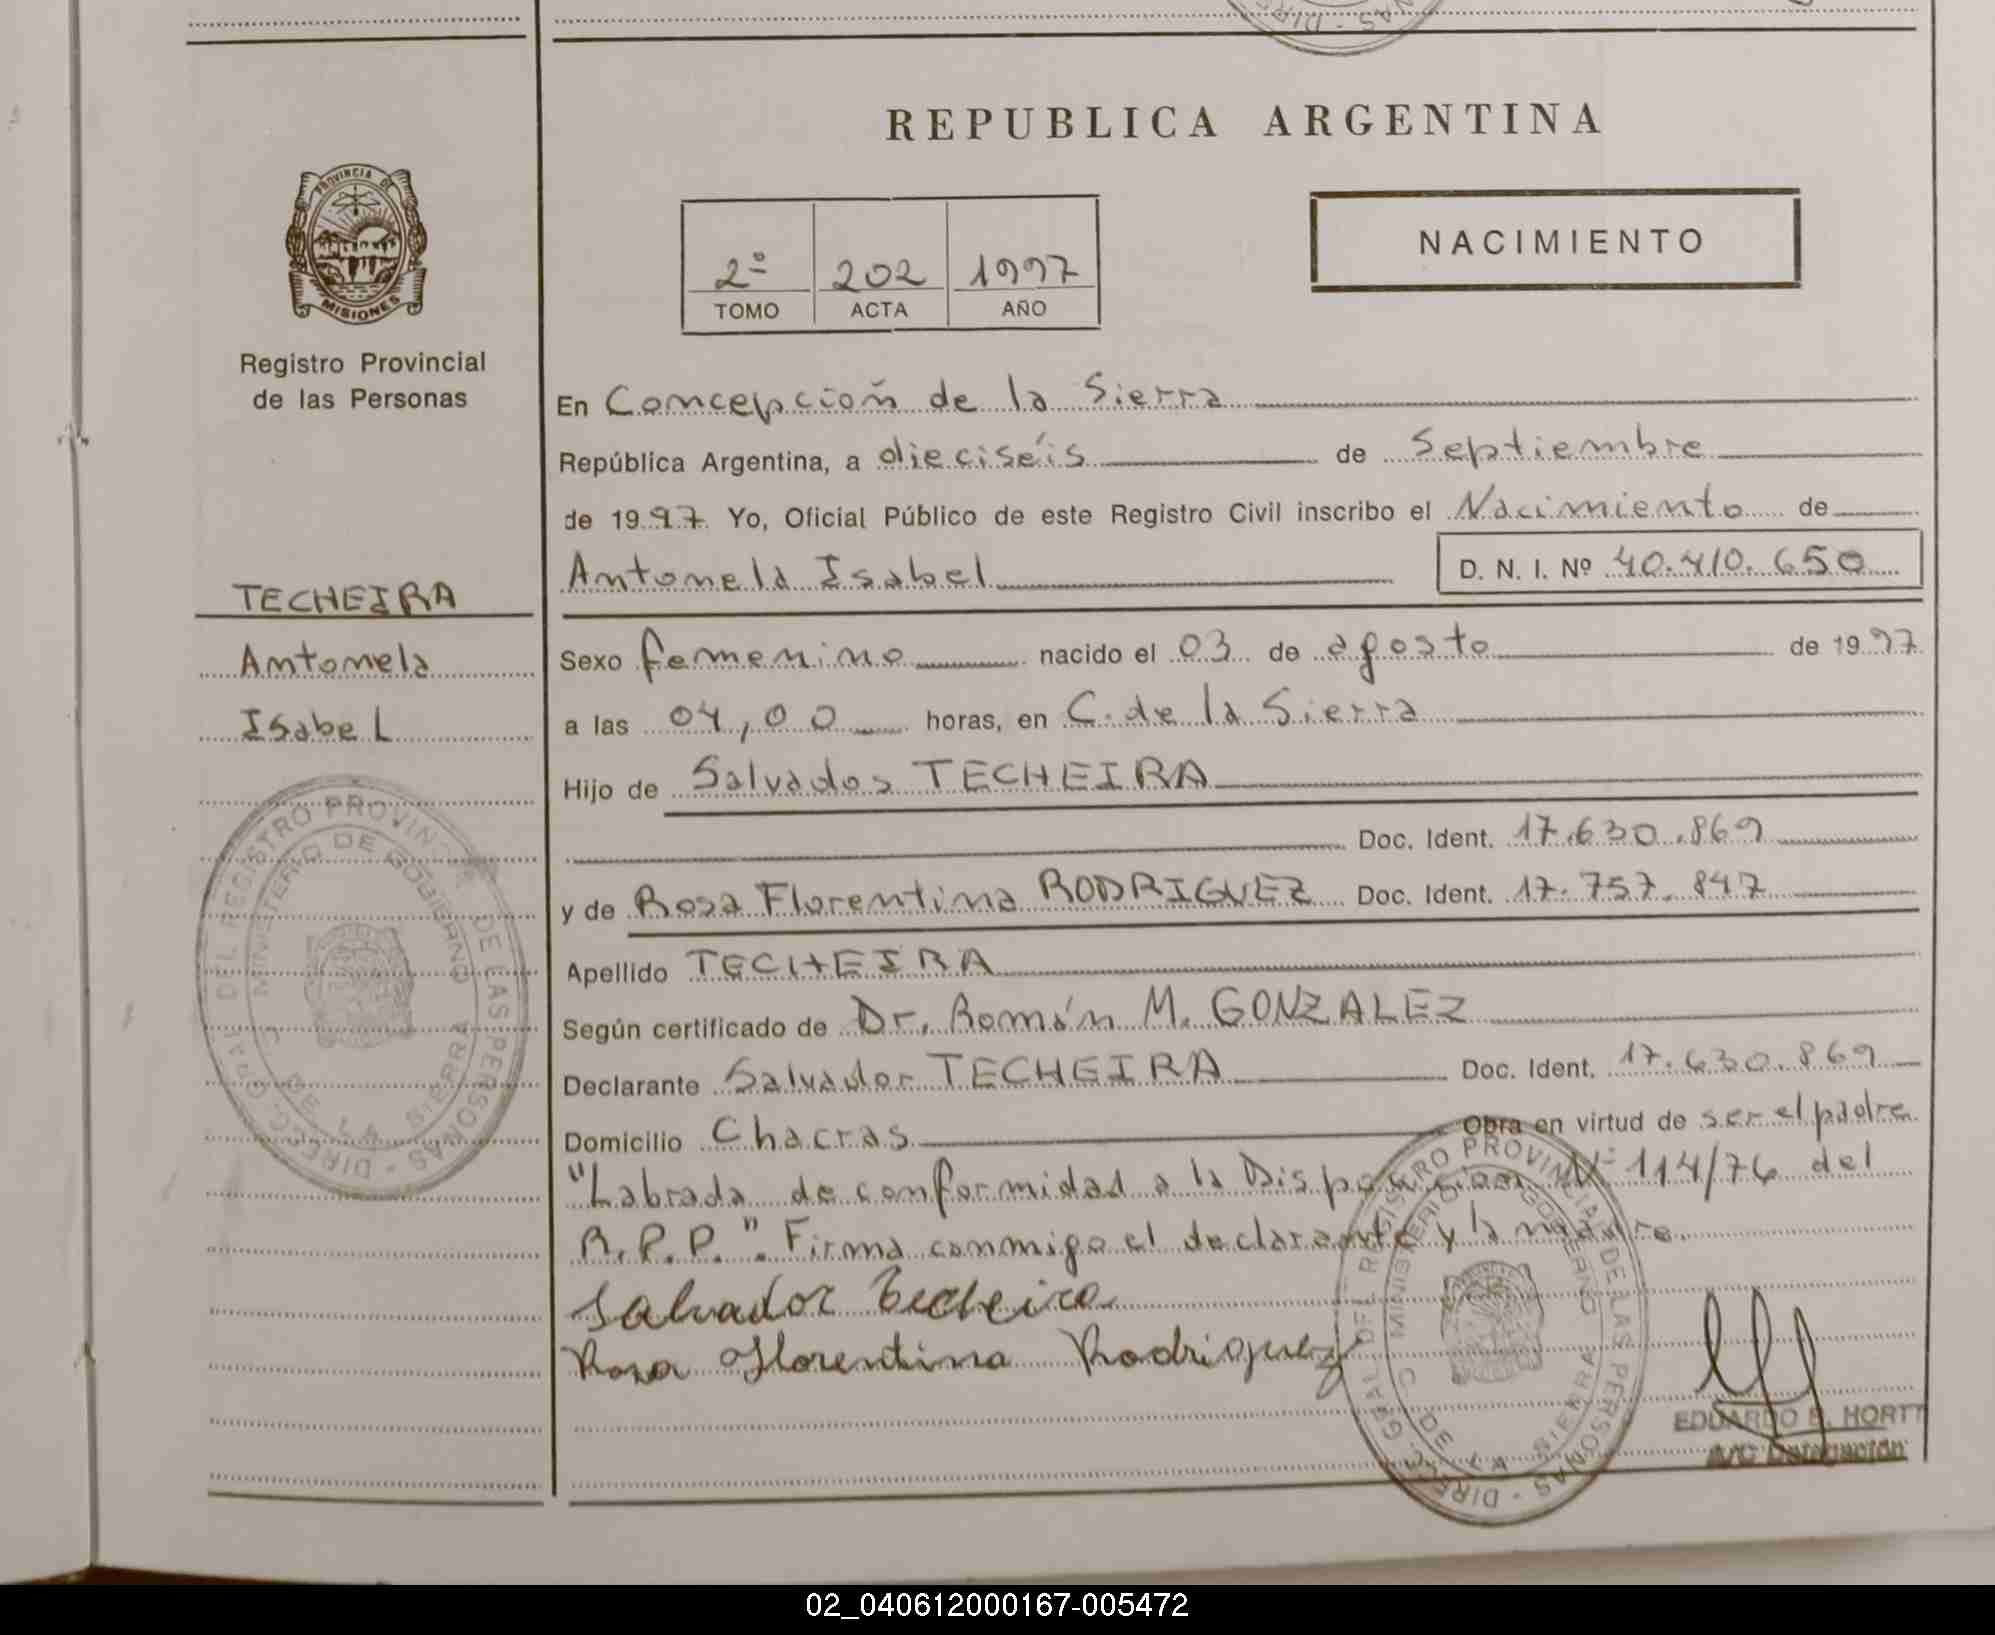 REPUBLICA ARGENTINA
PROVINCIA DE
MISIONES
Registro Provincial
de las Personas
2º 202 1997
TOMO ACTA AÑO
NACIMIENTO
En Concepción de la Sierra
República Argentina, a dieciséis de Septiembre
de 1997 Yo, Oficial Público de este Registro Civil inscribo el Nacimiento de
Antonela Isabel D. N. I. Nº 40.410.650
TECHEIRA
Antonela
Isabel
Sexo femenino nacido el 03 de agosto de 1997
a las 04,00 horas, en C. de la Sierra
Hijo de Salvador TECHEIRA
Doc. Ident. 17.630.869
y de Rosa Florentina RODRIGUEZ Doc. Ident. 17.757.847
Apellido TECHEIRA
Según certificado de Dr. Román M. GONZALEZ
Declarante Salvador TECHEIRA Doc. Ident. 17.630.869
Domicilio Chacras Obra en virtud de ser el padre
"Labrada de conformidad a la Disposición Nº 114/76 del
R.P.P.". Firma conmigo el declarante y la madre
Salvador Techeira
Rosa Florentina Rodriguez
DIRECC. GRAL. DEL REGISTRO PROVINCIAL DE LAS PERSONAS
MINISTERIO DE GOBIERNO
C. DE LA SIERRA
DIRECC. GRAL. DEL REGISTRO PROVINCIAL DE LAS PERSONAS
MINISTERIO DE GOBIERNO
C. DE LA SIERRA
EDUARDO E. HORTT
A/C Delegación
02_040612000167-005472